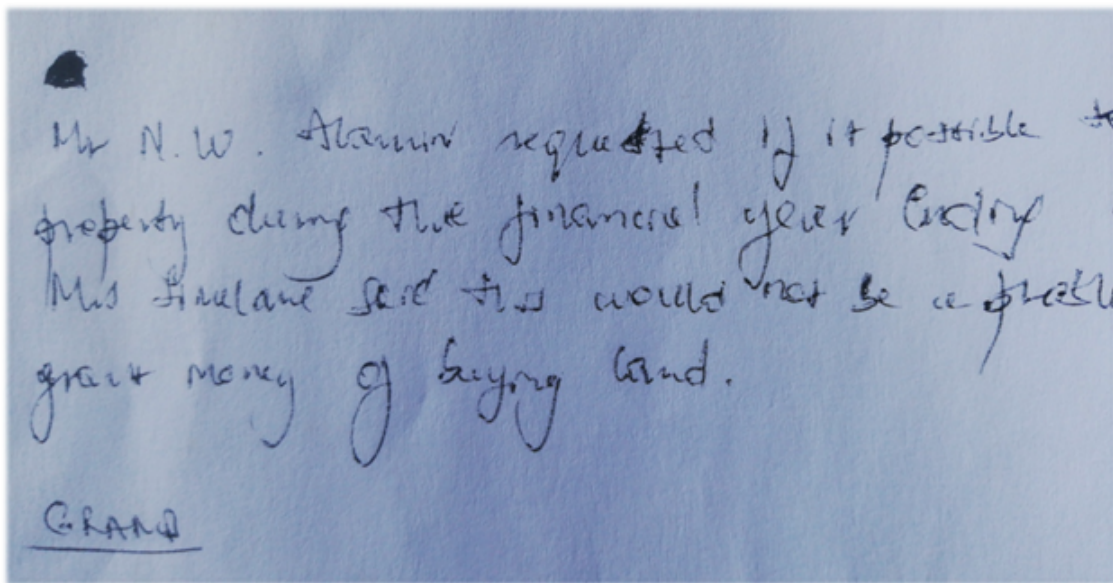 Mr N.W. requested if it possible to
property during the financial year Ending
Mrs Simelane said this would not be a
grant money of buying land.